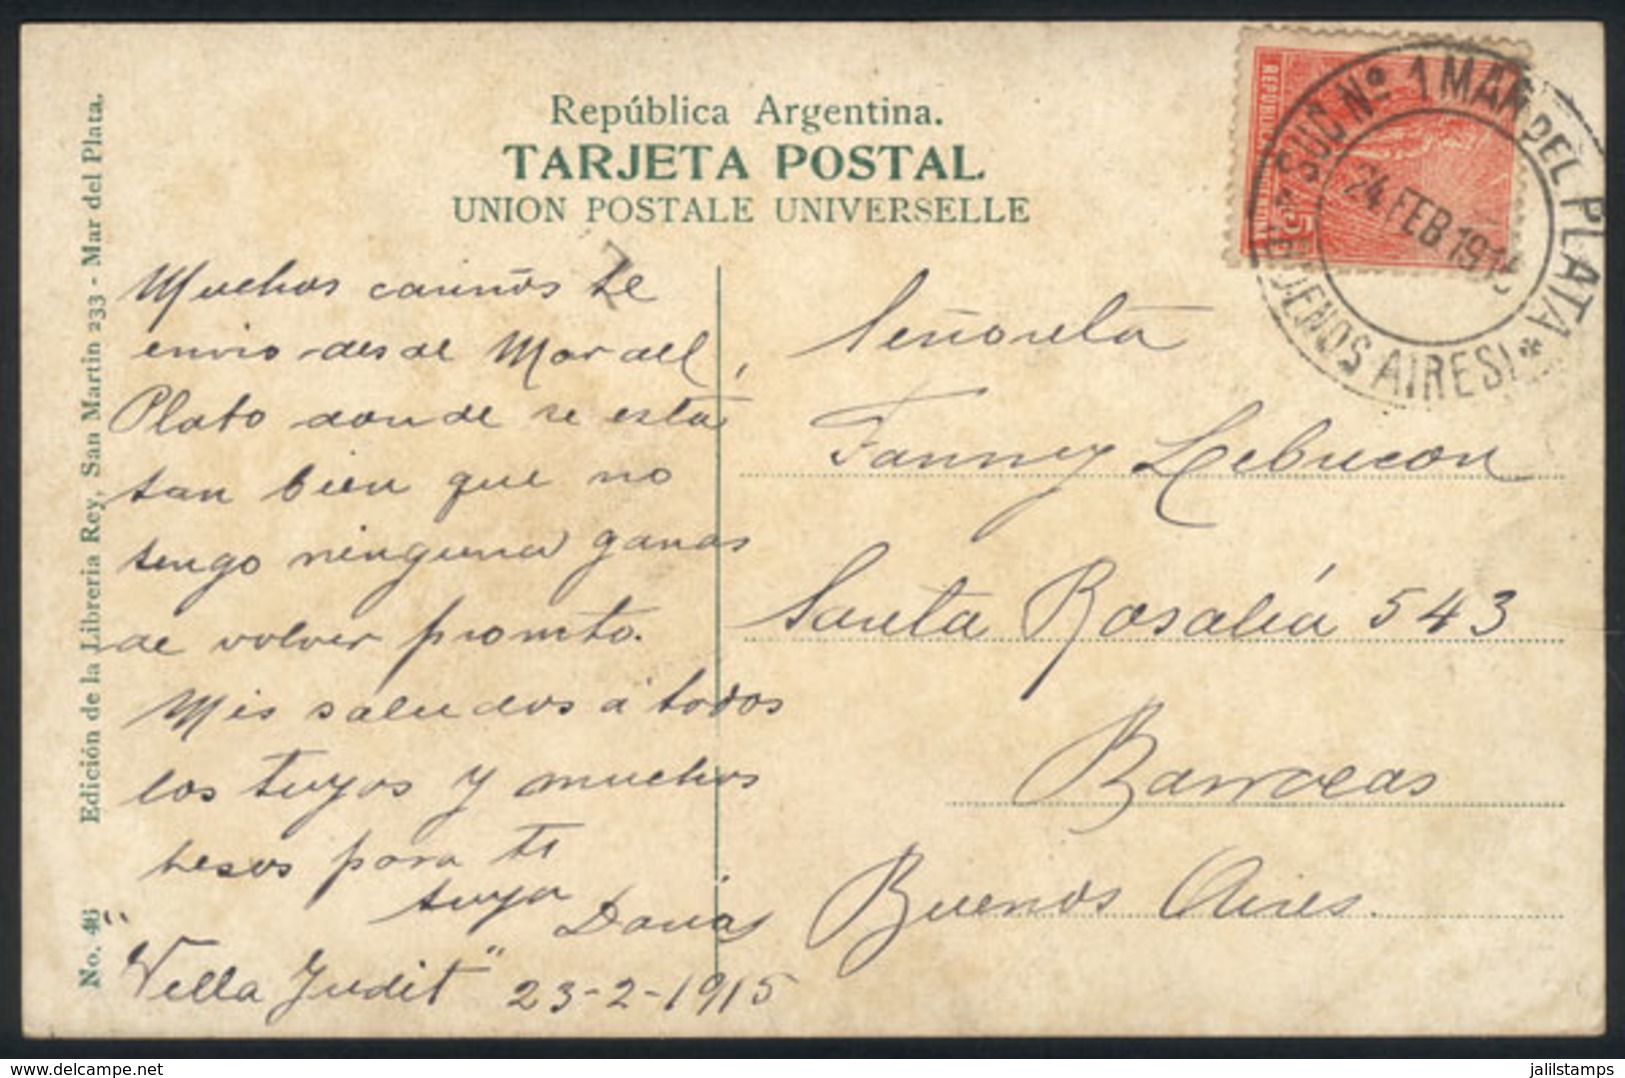 República Argentina.
TARJETA POSTAL
UNION POSTALE UNIVERSELLE
Edición de la Libreria Rey, San Martin 233 - Mar del Plata.
No. 46
REPUBLICA ARGENTINA
5
SUC Nº 1 MAR DEL PLATA
24 FEB 191
BUENOS AIRES
Muchos cariños te
envio desde Mar del
Plata donde se está
tan bien que no
tengo ninguna ganas
de volver promto.
Mis saludos á todos
los tuyos y muchos
besos para ti
tuya
"Villa Judit" 23-2-1915
Señorita
Fanney
Santa Rosalía 543
Barracas
Buenos Aires.
delcampe.net
jalilstamps